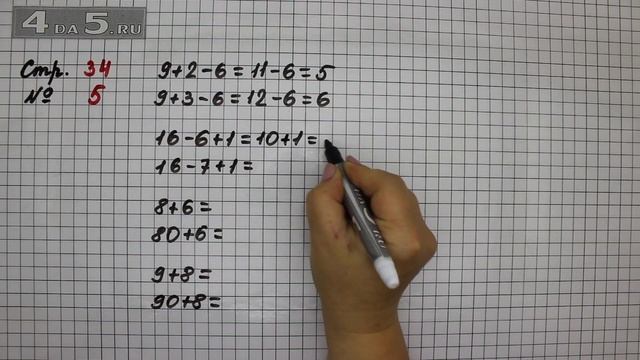 4DA5.RU
Стр. 34
№ 5
9+2-6=11-6=5
9+3-6=12-6=6
16-6+1=10+1=
16-7+1=
8+6=
80+6=
9+8=
90+8=